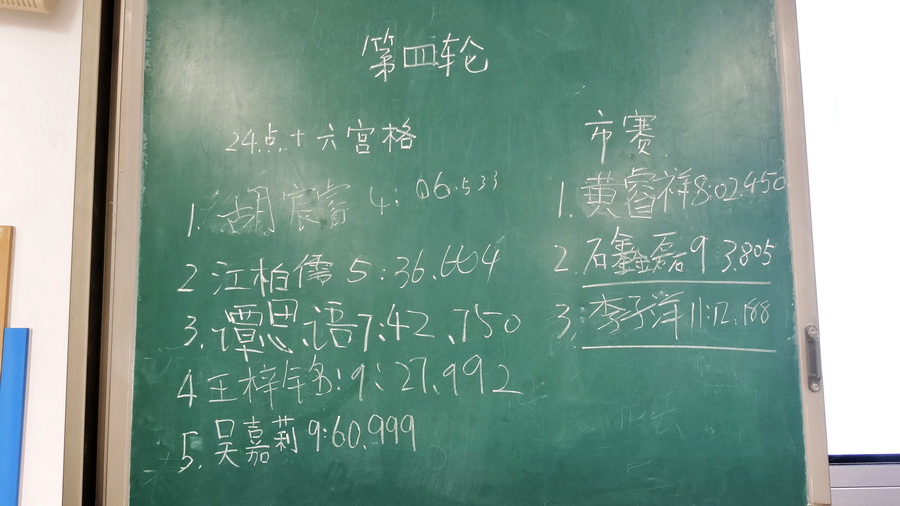 第四轮
24点+六宫格
1. 胡宸睿 4:06.533
2 江柏儒 5:36.604
3. 谭思语 7:42.750
4 王梓铭! 9:27.992
5. 吴嘉莉 9:60.999
市赛.
1. 黄睿祥 8:02.450
2. 石鑫磊 9:3.805
3. 李子洋 11:12.188